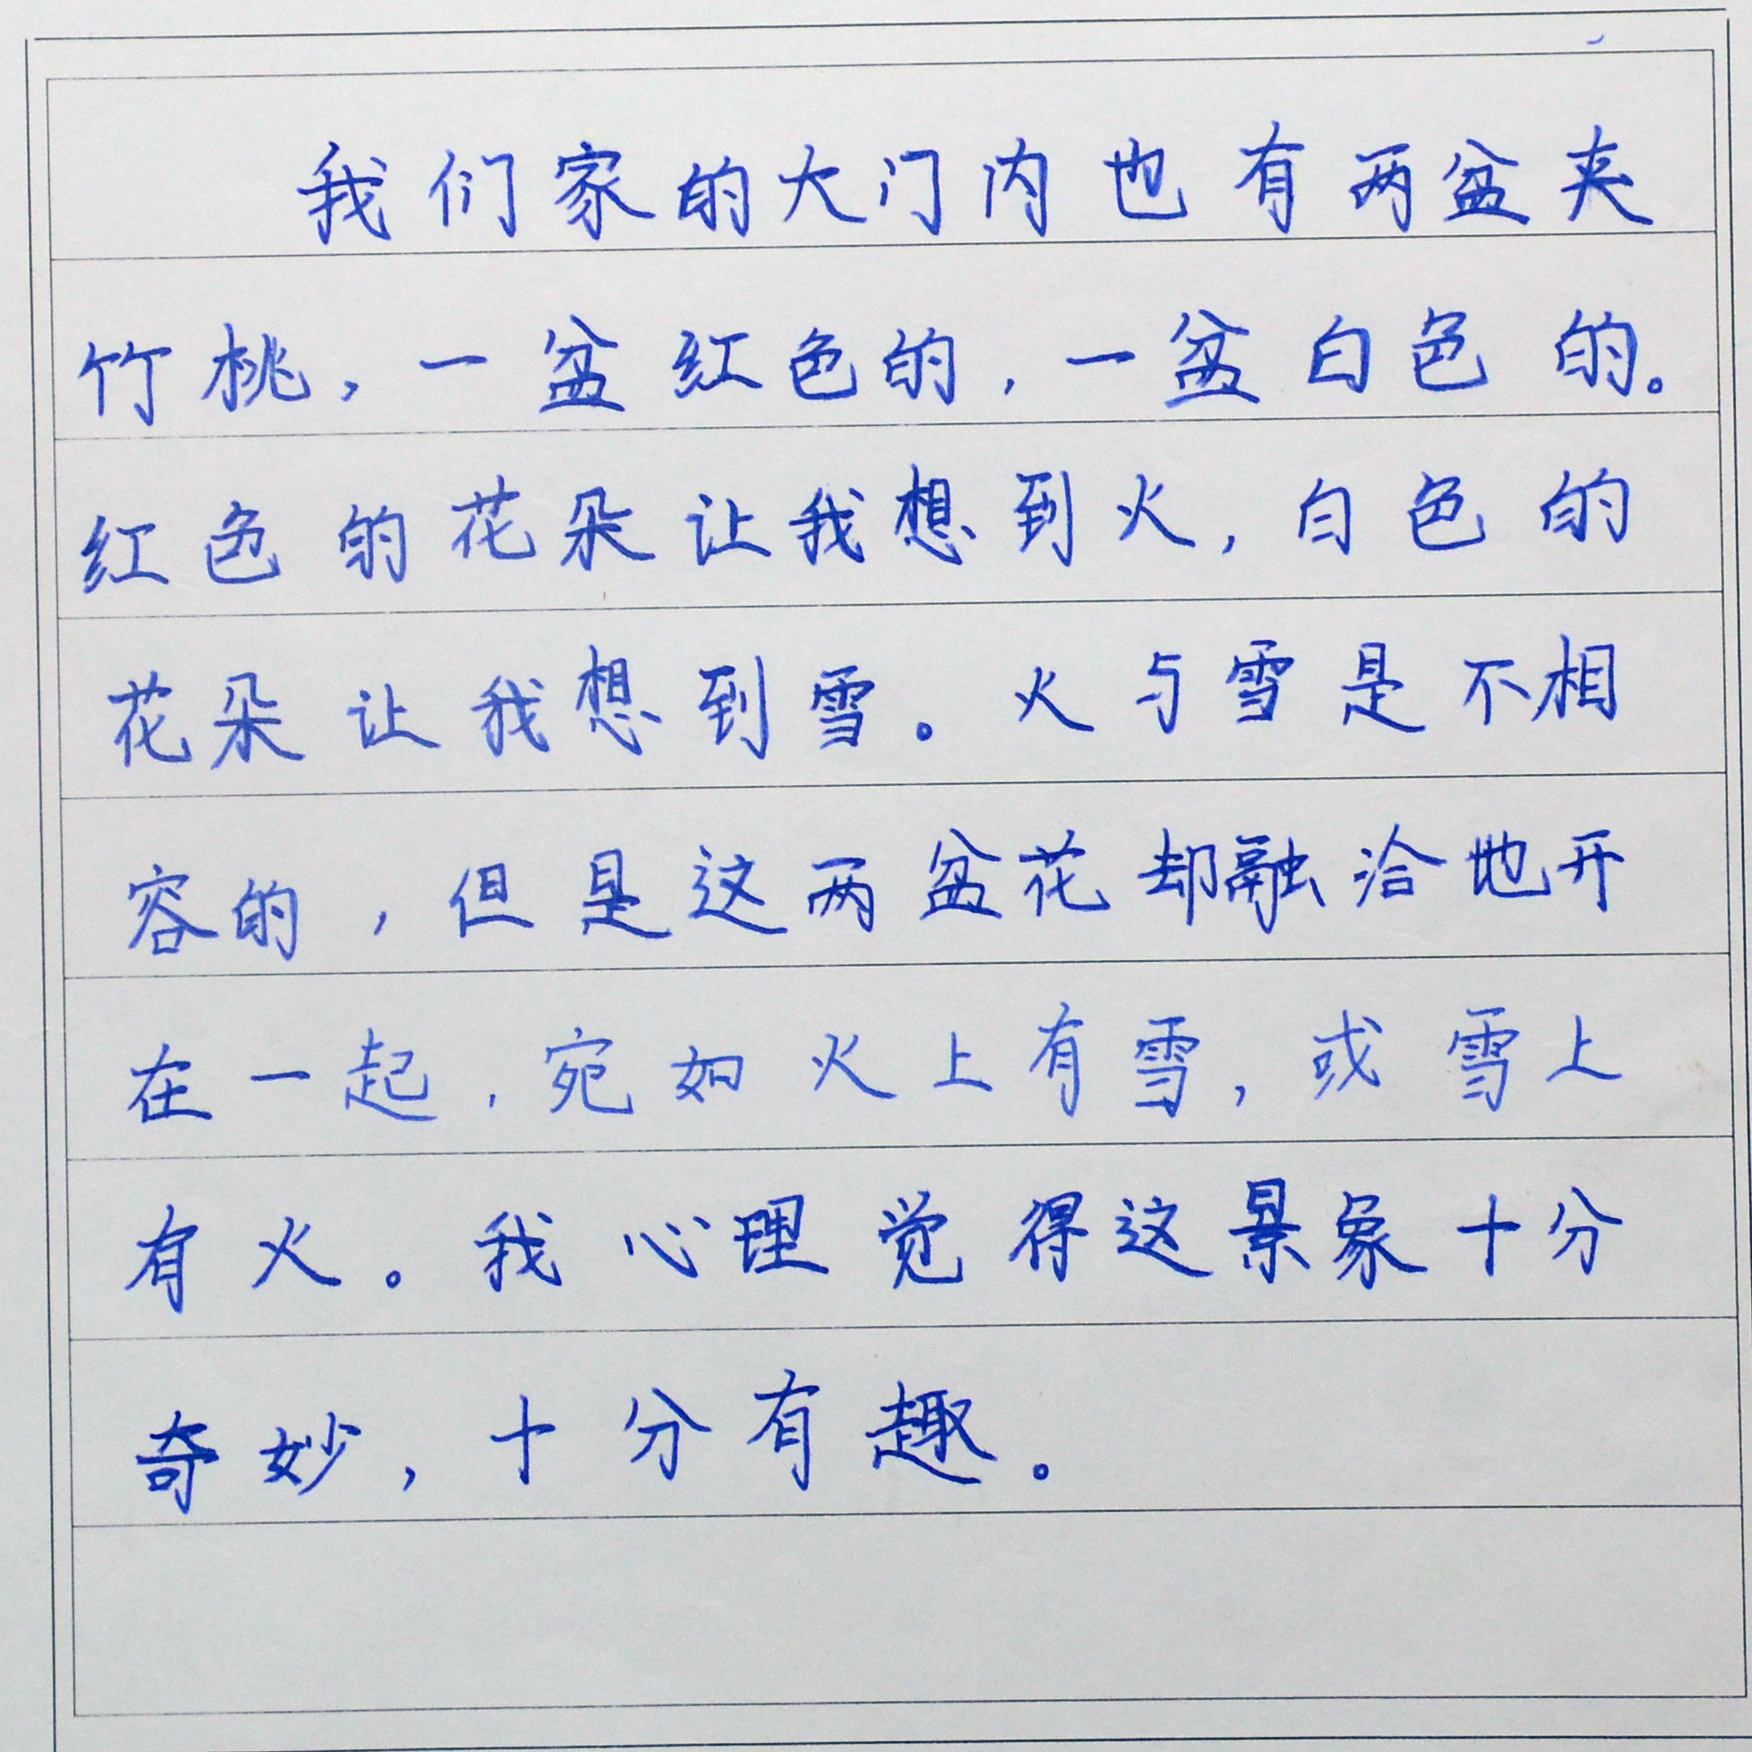 我们家的大门内也有两盆夹
竹桃，一盆红色的，一盆白色的。
红色的花朵让我想到火，白色的
花朵让我想到雪。火与雪是不相
容的，但是这两盆花却融洽地开
在一起，宛如火上有雪，或雪上
有火。我心理觉得这景象十分
奇妙，十分有趣。